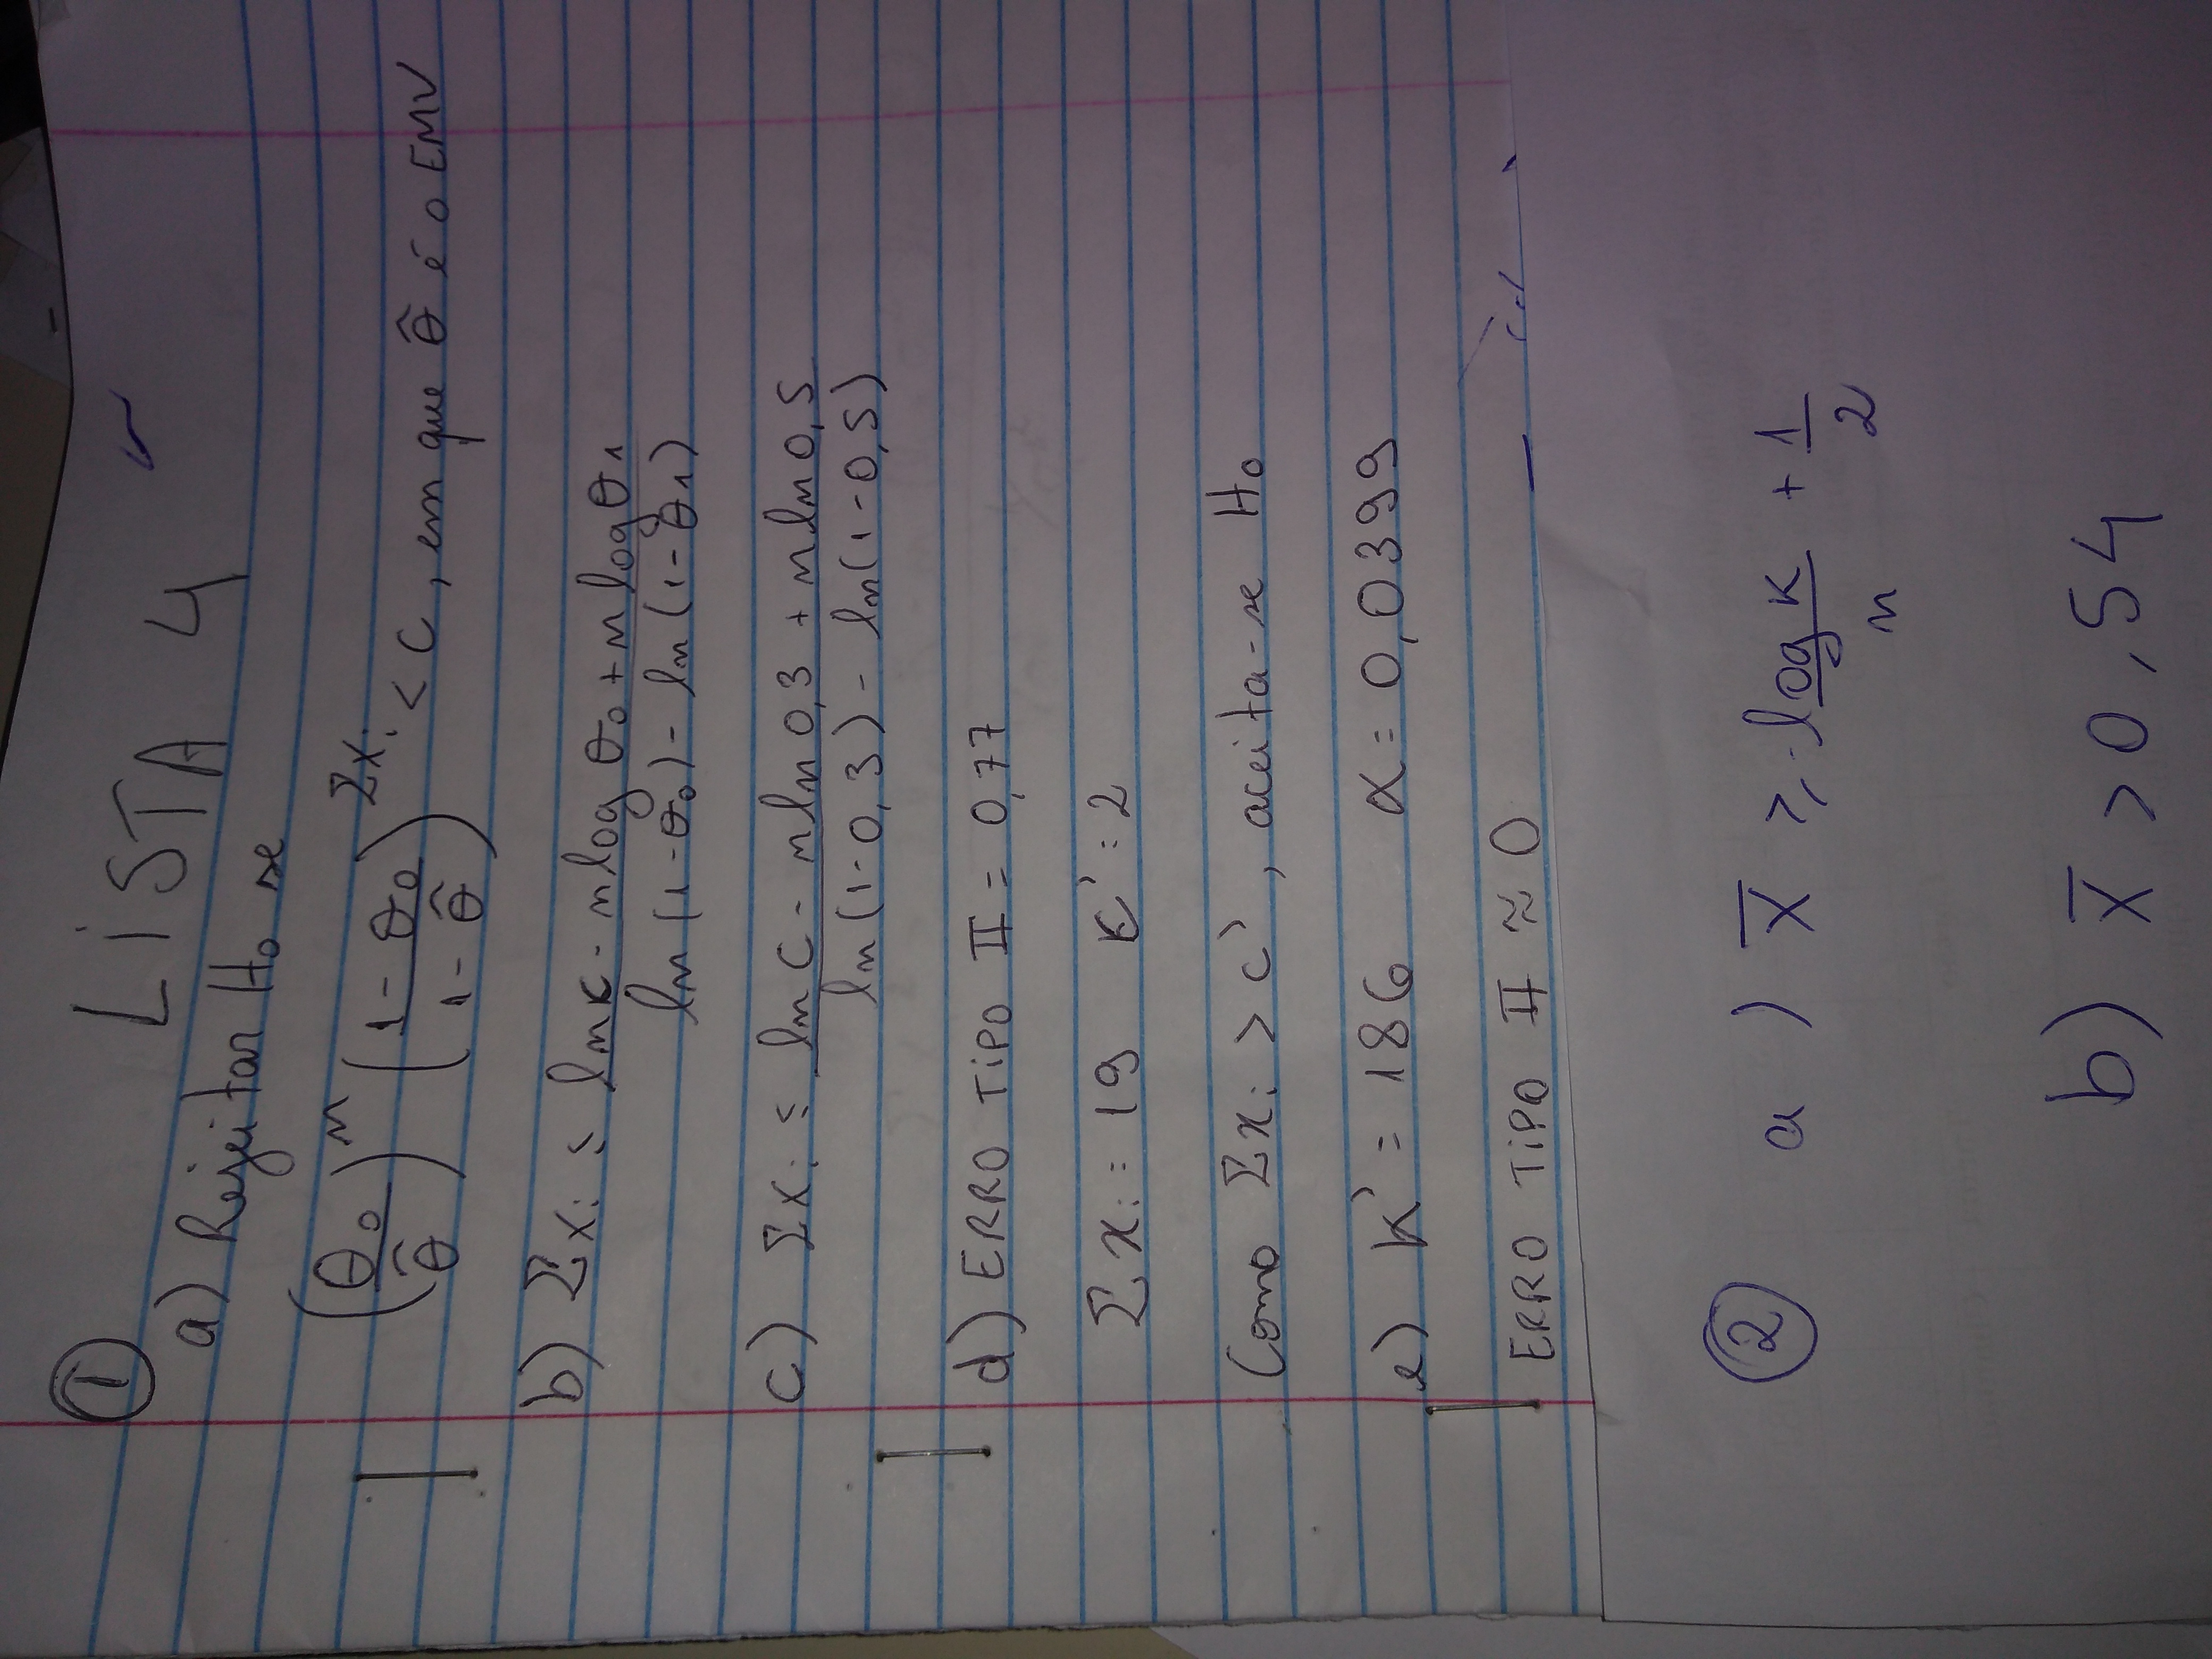 ① LISTA 4
a) Rejeitar H₀ se
(θ₀/θ̂)ⁿ ((1-θ₀)/(1-θ̂))^Σxᵢ < C, em que θ̂ é o EMV
b) Σxᵢ ≤ (ln κ - n log θ₀ + n log θ₁)/(ln (1-θ₀) - ln (1-θ₁))
c) Σxᵢ ≤ (ln C - n ln 0,3 + n ln 0,5)/(ln(1-0,3) - ln(1-0,5))
d) ERRO TIPO II = 0,77
Σxᵢ = 19 K' = 2
Como Σxᵢ > c', aceita-se H₀
e) K' = 186 α = 0,0399
ERRO TIPO II ≈ 0
② a) X̄ ≥ -log κ/n + 1/2
b) X̄ > 0,54